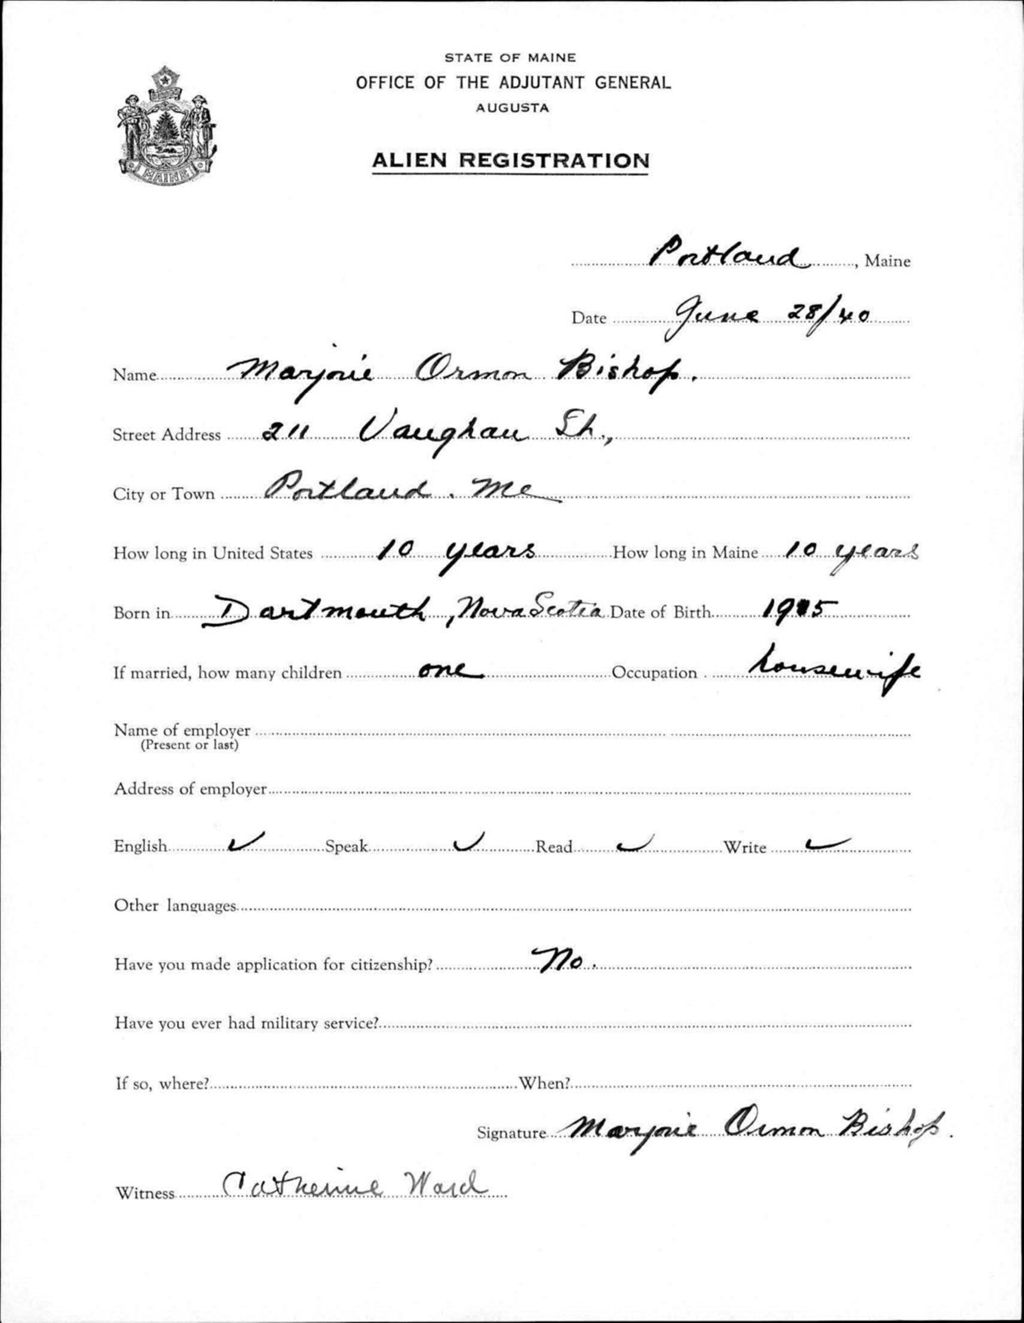 STATE OF MAINE
OFFICE OF THE ADJUTANT GENERAL
AUGUSTA
ALIEN REGISTRATION
MAINE
Portland, Maine
Date June 28/40
Name Marjorie Ormon Bishop.
Street Address 211 Vaughan St.,
City or Town Portland. Me
How long in United States 10 years How long in Maine 10 years
Born in Dartmouth, Nova Scotia Date of Birth 1915
If married, how many children one Occupation housewife
Name of employer
(Present or last)
Address of employer
English ✓ Speak ✓ Read ✓ Write ✓
Other languages
Have you made application for citizenship? No.
Have you ever had military service?
If so, where? When?
Signature Marjorie Ormon Bishop.
Witness Catherine Ward